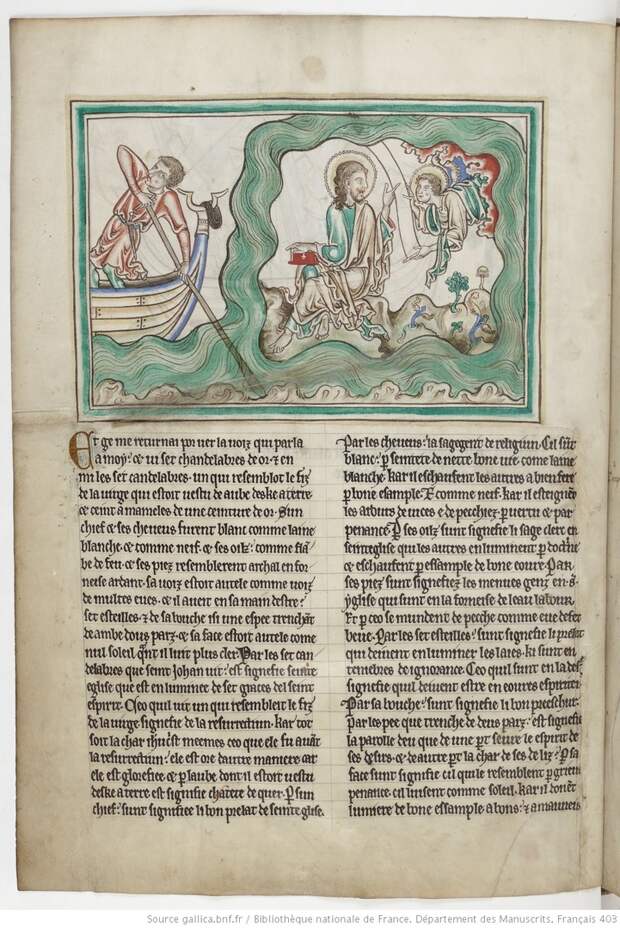 Et ge me returnai por ver la voiz qui parla
a moy. ⁊ vi set chandelabres de or ⁊ en
mi les set candelabres un qui resemblot le fiz
de la virge qui estoit vestu de aube deske a terre
⁊ ceint a mameles de une ceinture de or. Sun
chief ⁊ ses cheveus furent blanc comme laine
blanche ⁊ comme neif ⁊ ses oilz comme flã
be de feu ⁊ ses piez resemblerent archal en for
neise ardant. sa voiz estoit autele comme voiz
de multes eues. ⁊ il aveit en sa main destre
set esteilles ⁊ de sa bouche issi une espee trenchãt
de ambe dous parz. ⁊ sa face estoit autele come
mil soleil quant il lunt plus cler. Par les set can
delabres que seint Johan vit est signifie seinte
eglise que est en luminee de set graces del seint
espirit. Ceo quil vit un qui resembleit le fiz
de la virge signefie de la resurrectiun. kar tot
soit la char meemes ceo que ele fu avãt
la resurrectiun ele est ore dautre maniere car
ele est glorefiee. ⁊ p laube dont il estoit vestu
deske a terre est signifie chastete de quer. P sun
chief sunt signifiee li bon prelat de seinte glise.
Par les cheveus la sagegent de religiun. Cil sũt
blanc p seintete de nette bone vie. come laine
blanche. kar il eschaufent les autres a bien fere
p bone esample. E comme neif. kar il esteignẽt
les arburs de vices ⁊ de pecchiez p vertu ⁊ par
penance. P ses oilz sunt signifie li sage clerc en
seinteglise qui les autres en luminent p doctrĩe
⁊ eschaufent p essample de bone eovre. Par
ses piez sunt signifiez les menues genz en s
yglise qui sunt en la forneise de leau labour
Et p ceo se mundent de pecche comme eue de fet
beue. Par les set esteilles sunt signifie li prelat
qui deivent en luminer les laies. ki sunt en
tenebres de ignorance. Ceo quil sunt en la destre
signifie quil deivent estre en eovres espiritẽs
Par sa bouche sunt signifie li bon prescheur.
Par les pee que trenche de deus parz est signifie
la parolle deu que de une pt sevre le espirit de
ses desirs ⁊ de autre pt la char de ses deliz. P sa
face sunt signifie cil qui le resemblent p grieu
penance. cil luisent comme soleil. kar il donẽt
lumiere de bone essample a bons ⁊ a mauveis
Source gallica.bnf.fr / Bibliothèque nationale de France. Département des Manuscrits. Français 403